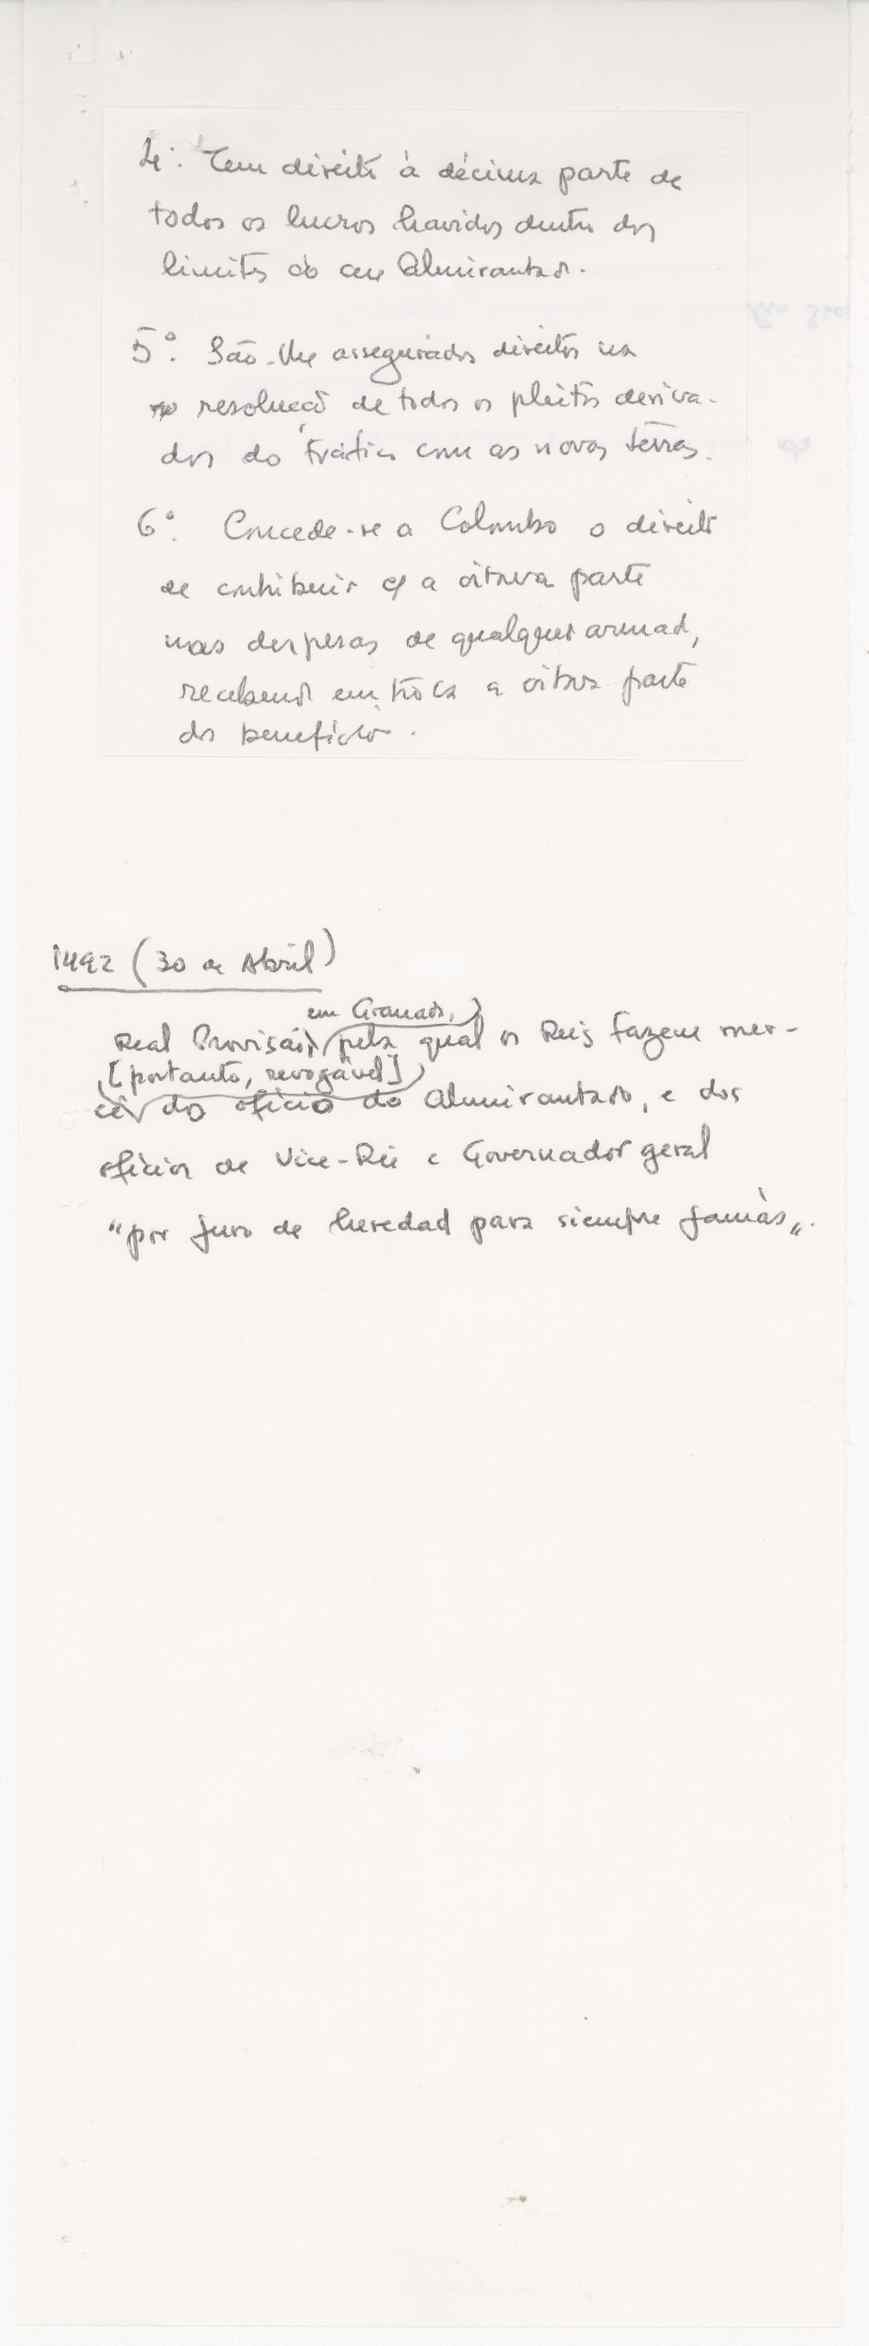 4º. Tem direito à décima parte de
todos os lucros havidos dentro dos
limites do seu Almirantado.
5º. São-lhe assegurados direitos na
resolução de todos os pleitos deriva-
dos do tráfico com as novas terras.
6º. Concede-se a Colombo o direito
de contribuir c/ a oitava parte
nas despesas de qualquer armada,
recebendo em troca a oitava parte
do benefício.
1492 (30 de Abril)
em Granada,
Real Provisão, pela qual os Reis fazem mer-
[portanto, revogável]
cê do ofício do Almirantado, e dos
ofícios de Vice-Rei e Governador geral
"por juro de heredad para siempre jamàs".